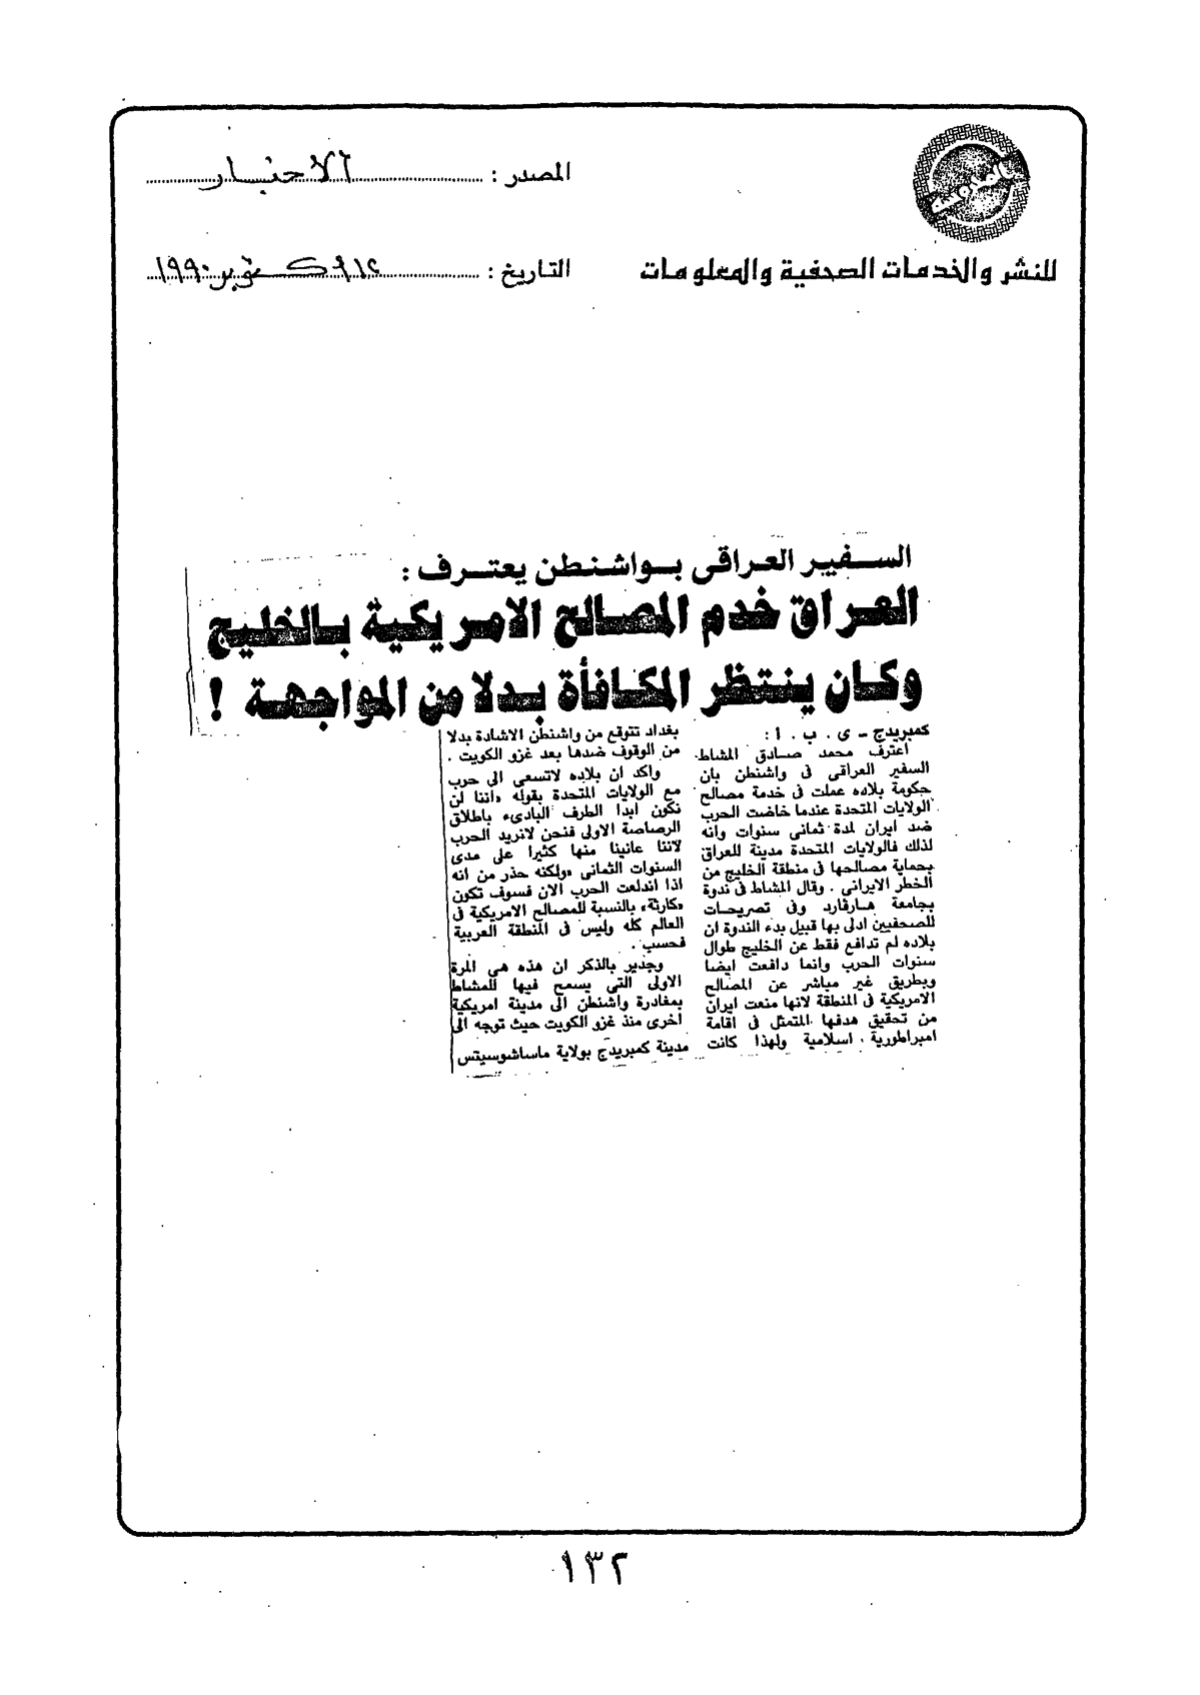 المصدر : الاخبار
للنشر والخدمات الصحفية والمعلومات
التاريخ : اكتوبر ١٩٩٠
السفير العراقى بواشنطن يعترف :
العراق خدم المصالح الامريكية بالخليج
وكان ينتظر المكافأة بدلا من المواجهة !
كمبريدج - ى . ب . أ :
اعترف محمد صادق المشاط
السفير العراقى فى واشنطن بان
حكومة بلاده عملت فى خدمة مصالح
الولايات المتحدة عندما خاضت الحرب
ضد ايران لمدة ثمانى سنوات وانه
لذلك فالولايات المتحدة مدينة للعراق
بحماية مصالحها فى منطقة الخليج من
الخطر الايرانى . وقال المشاط فى ندوة
بجامعة هارفارد وفى تصريحات
للصحفيين ادلى بها قبيل بدء الندوة ان
بلاده لم تدافع فقط عن الخليج طوال
سنوات الحرب وانما دافعت ايضا
وبطريق غير مباشر عن المصالح
الامريكية فى المنطقة لانها منعت ايران
من تحقيق هدفها المتمثل فى اقامة
امبراطورية اسلامية ولهذا كانت
بغداد تتوقع من واشنطن الاشادة بدلا
من الوقوف ضدها بعد غزو الكويت .
واكد ان بلاده لاتسعى الى حرب
مع الولايات المتحدة بقوله «اننا لن
نكون ابدا الطرف البادىء باطلاق
الرصاصة الاولى فنحن لانريد الحرب
لاننا عانينا منها كثيرا على مدى
السنوات الثمانى «ولكنه حذر من انه
اذا اندلعت الحرب الان فسوف تكون
«كارثة» بالنسبة للمصالح الامريكية فى
العالم كله وليس فى المنطقة العربية
فحسب .
وجدير بالذكر ان هذه هى المرة
الاولى التى يسمح فيها للمشاط
بمغادرة واشنطن الى مدينة امريكية
اخرى منذ غزو الكويت حيث توجه الى
مدينة كمبريدج بولاية ماساشوسيتس
١٣٢